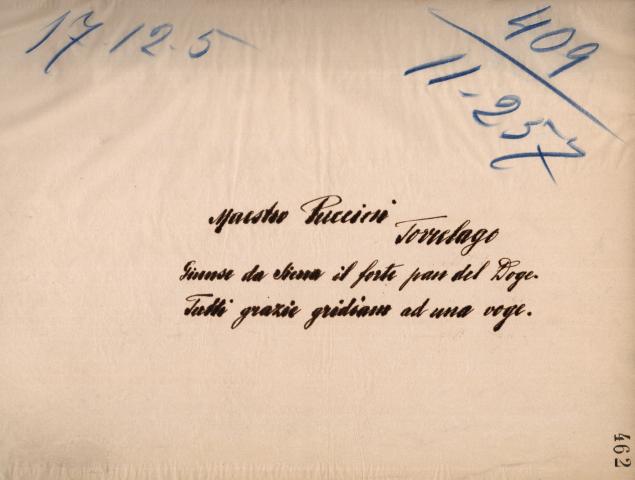 17.12.5
409
11-257
Maestro Puccini
Torrelago
Giunse da Siena il forte pan del Doge.
Tutti grazie gridiam ad una voge.
462